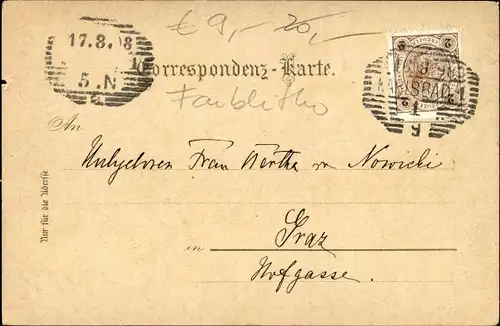 € 9,- 20,-
17.8.98
5.N
Correspondenz-Karte.
Farblitho
2 2
KARLSBAD 1
An
Frau Bertha von Nowicki
in Graz
Hofgasse.
Nur für die Adresse.